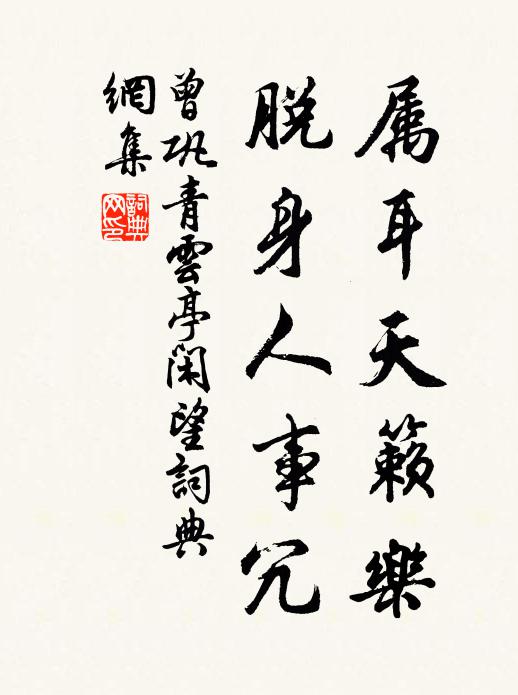 属耳天籟樂
脱身人事冗
曾巩青雲亭闲望詞典
網集
詞典
网印